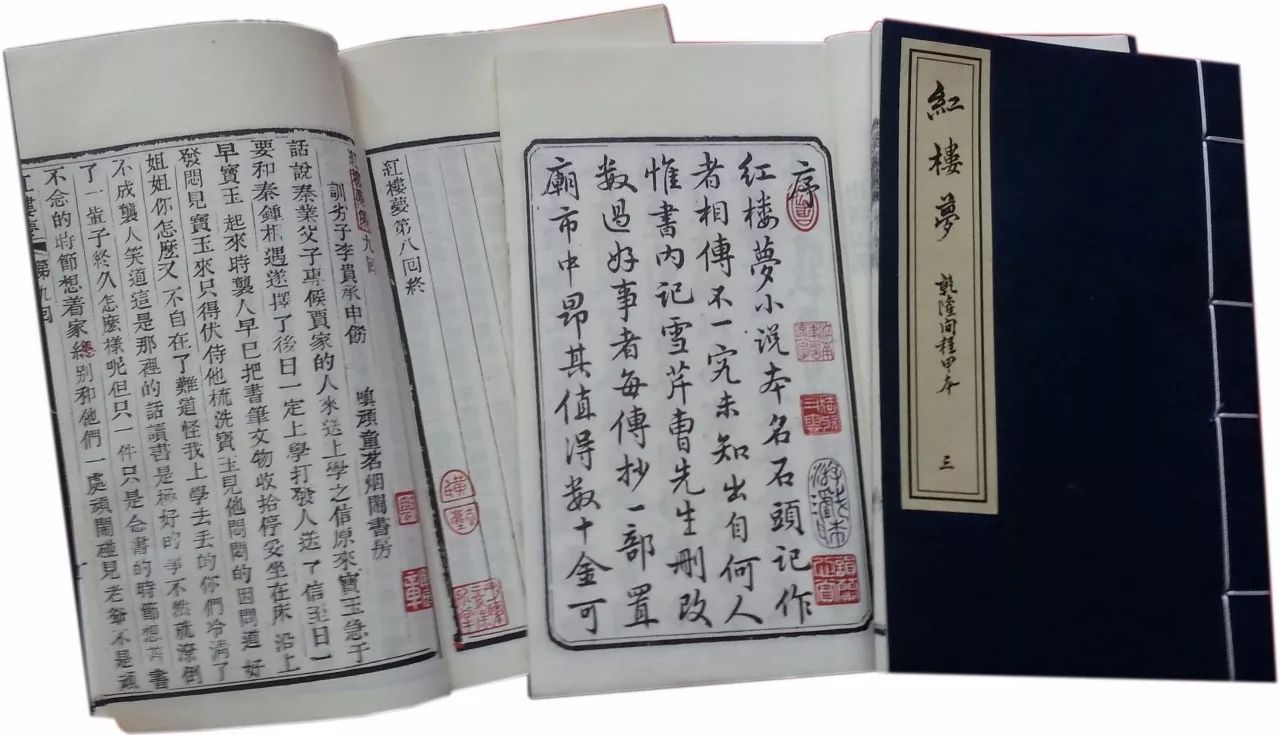 紅樓夢
乾隆间程甲本
三
序
红楼夢小说本名石頭记作
者相傳不一究未知出自何人
惟書内记雪芹曹先生删改
数過好事者每傳抄一部置
廟市中昂其值得数十金可
紅樓夢第八回終
紅樓夢第九回
訓劣子李貴承申飭
嗔頑童茗烟鬧書房
話說秦業父子專候賈家的人來送上學之信原來寶玉急于
要和秦鍾相遇遂擇了後日一定上學打發人送了信至日一
早寶玉起來時襲人早已把書筆文物收拾停妥坐在床沿上
發悶見寶玉來只得伏侍他梳洗寶玉見他悶悶的因問道好
姐姐你怎麽又不自在了難道怪我上學去丟的你們冷清了
不成襲人笑道這是那裡的話讀書是極好的事不然就潦倒
了一輩子終久怎麽樣呢但只一件只是念書的時節想着書
不念的時節想着家總别和他們一處頑鬧碰見老爺不是頑
紅樓夢
第九回